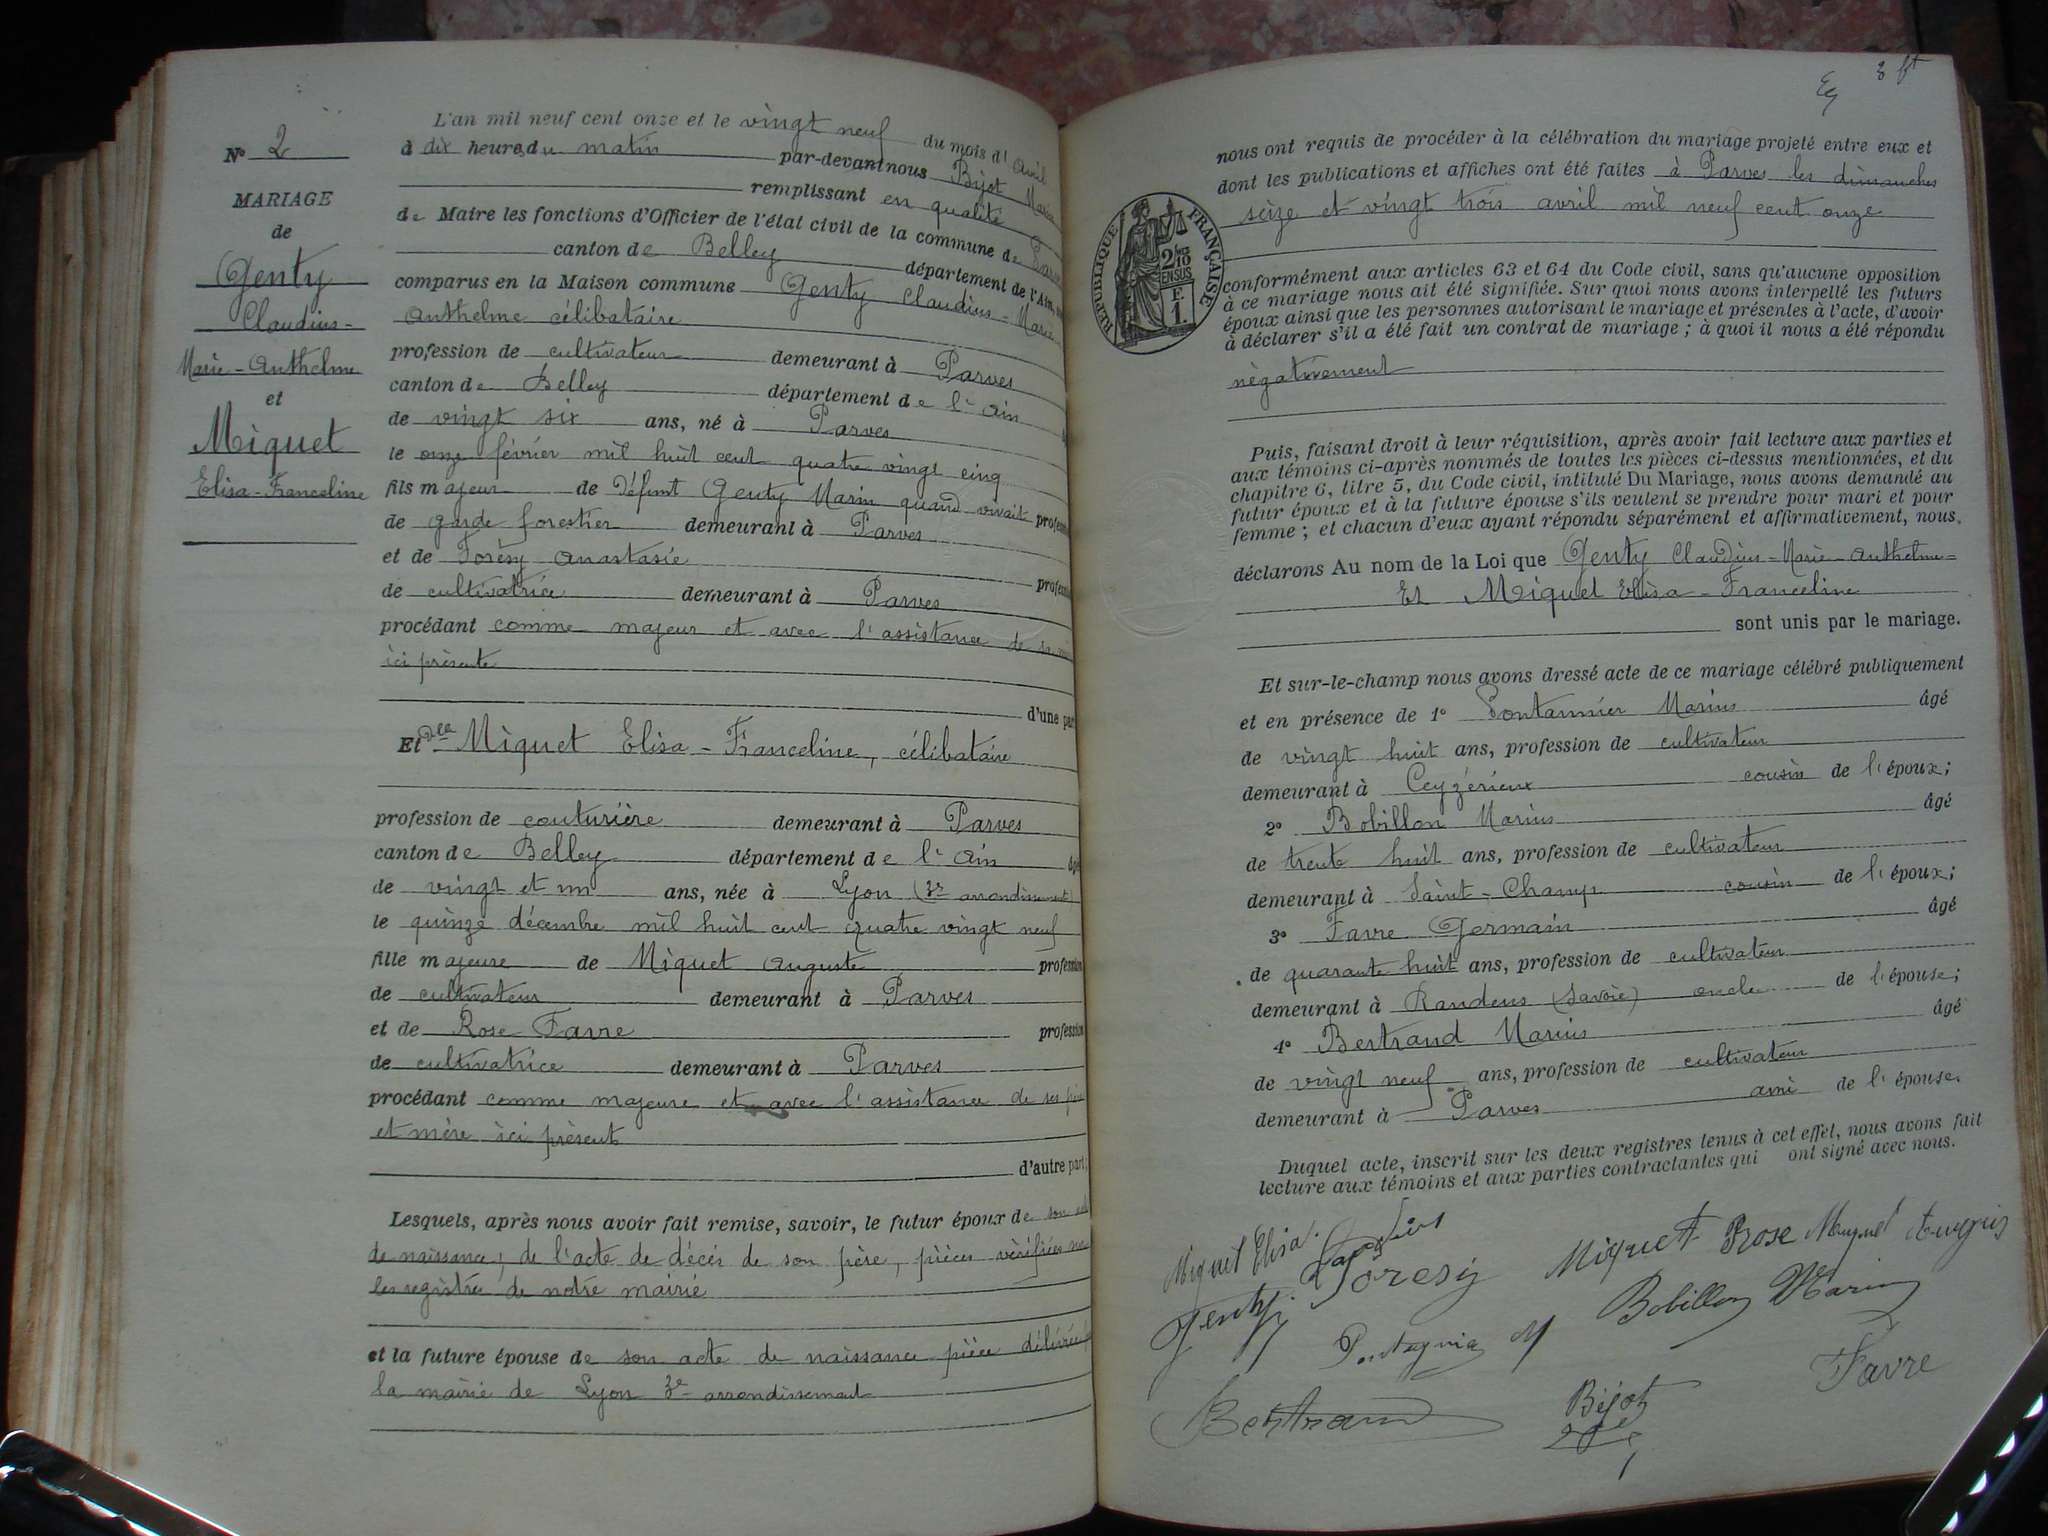 N° 2
MARIAGE
de
Genty
Claudius-
Marie-Anthelme
et
Miquet
Elisa-Franceline
L'an mil neuf cent onze et le vingt neuf du mois d'avril
à dix heures du matin par-devant nous Bijot Marin
remplissant en qualité
de Maire les fonctions d'Officier de l'état civil de la commune de Parves
canton de Belley département de l'Ain,
comparus en la Maison commune Genty Claudius-Marie-
Anthelme célibataire
profession de cultivateur demeurant à Parves
canton de Belley département de l'Ain
de vingt six ans, né à Parves
le onze février mil huit cent quatre vingt cinq
fils majeur de Défunt Genty Marin quand vivait profession
de garde forestier demeurant à Parves
et de Forésy Anastasie profession
de cultivatrice demeurant à Parves
procédant comme majeur et avec l'assistance de sa mère
ici présente
d'une part
Et Dlle Miquet Elisa-Franceline, célibataire
profession de couturière demeurant à Parves
canton de Belley département de l'Ain âgée
de vingt et un ans, née à Lyon (3e arrondissement)
le quinze décembre mil huit cent quatre vingt neuf
fille majeure de Miquet Auguste profession
de cultivateur demeurant à Parves
et de Rose Favre profession
de cultivatrice demeurant à Parves
procédant comme majeure et avec l'assistance de ses père
et mère ici présents
d'autre part;
Lesquels, après nous avoir fait remise, savoir, le futur époux de son acte
de naissance; de l'acte de décès de son père, pièces vérifiées
les registres de notre mairie
et la future épouse de son acte de naissance pièce délivrée
la mairie de Lyon 3e arrondissement
8 ft
nous ont requis de procéder à la célébration du mariage projeté entre eux et
dont les publications et affiches ont été faites à Parves les dimanches
seize et vingt trois avril mil neuf cent onze
RÉPUBLIQUE FRANÇAISE
2/10 EN SUS
F.
1.
conformément aux articles 63 et 64 du Code civil, sans qu'aucune opposition
à ce mariage nous ait été signifiée. Sur quoi nous avons interpellé les futurs
époux ainsi que les personnes autorisant le mariage et présentes à l'acte, d'avoir
à déclarer s'il a été fait un contrat de mariage; à quoi il nous a été répondu
négativement
Puis, faisant droit à leur réquisition, après avoir fait lecture aux parties et
aux témoins ci-après nommés de toutes les pièces ci-dessus mentionnées, et du
chapitre 6, titre 5, du Code civil, intitulé Du Mariage, nous avons demandé au
futur époux et à la future épouse s'ils veulent se prendre pour mari et pour
femme; et chacun d'eux ayant répondu séparément et affirmativement, nous
déclarons Au nom de la Loi que Genty Claudius-Marie-Anthelme-
Et Miquet Elisa-Franceline
sont unis par le mariage.
Et sur-le-champ nous avons dressé acte de ce mariage célébré publiquement
et en présence de 1° Pontannier Marius âgé
de vingt huit ans, profession de cultivateur
demeurant à Ceyzérieux cousin de l'époux;
2° Bobillon Marius âgé
de trente huit ans, profession de cultivateur
demeurant à Saint-Champ cousin de l'époux;
3° Favre Germain âgé
de quarante huit ans, profession de cultivateur
demeurant à Randens (Savoie) oncle de l'épouse;
4° Bertrand Marius âgé
de vingt neuf ans, profession de cultivateur
demeurant à Parves ami de l'épouse.
Duquel acte, inscrit sur les deux registres tenus à cet effet, nous avons fait
lecture aux témoins et aux parties contractantes qui ont signé avec nous.
Miquet Elisa. Miquet Rose Miquet
Genty Foresy Bobillon
Favre
Bertrand Bijot